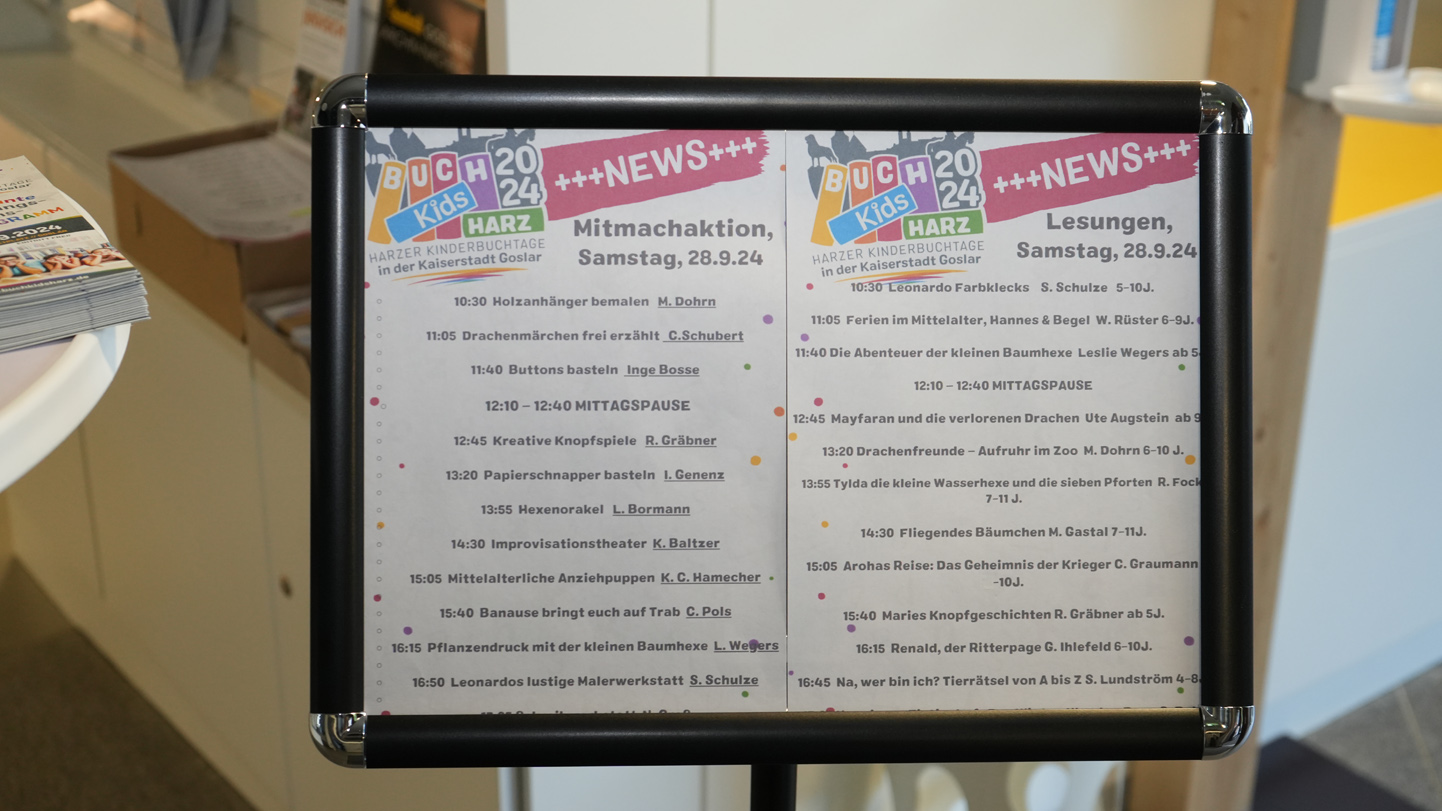 BUCH 2024
Kids
HARZ
HARZER KINDERBUCHTAGE
in der Kaiserstadt Goslar
+++NEWS+++
Mitmachaktion,
Samstag, 28.9.24
10:30 Holzanhänger bemalen M. Dohrn
11:05 Drachenmärchen frei erzählt C.Schubert
11:40 Buttons basteln Inge Bosse
12:10 – 12:40 MITTAGSPAUSE
12:45 Kreative Knopfspiele R. Gräbner
13:20 Papierschnapper basteln I. Genenz
13:55 Hexenorakel L. Bormann
14:30 Improvisationstheater K. Baltzer
15:05 Mittelalterliche Anziehpuppen K. C. Hamecher
15:40 Banause bringt euch auf Trab C. Pols
16:15 Pflanzendruck mit der kleinen Baumhexe L. Wegers
16:50 Leonardos lustige Malerwerkstatt S. Schulze
BUCH 2024
Kids
HARZ
HARZER KINDERBUCHTAGE
in der Kaiserstadt Goslar
+++NEWS+++
Lesungen,
Samstag, 28.9.24
10:30 Leonardo Farbklecks S. Schulze 5-10J.
11:05 Ferien im Mittelalter, Hannes & Begel W. Rüster 6-9J.
11:40 Die Abenteuer der kleinen Baumhexe Leslie Wegers ab 5
12:10 – 12:40 MITTAGSPAUSE
12:45 Mayfaran und die verlorenen Drachen Ute Augstein ab 9
13:20 Drachenfreunde – Aufruhr im Zoo M. Dohrn 6-10 J.
13:55 Tylda die kleine Wasserhexe und die sieben Pforten R. Fock
7-11 J.
14:30 Fliegendes Bäumchen M. Gastal 7-11J.
15:05 Arohas Reise: Das Geheimnis der Krieger C. Graumann
-10J.
15:40 Maries Knopfgeschichten R. Gräbner ab 5J.
16:15 Renald, der Ritterpage G. Ihlefeld 6-10J.
16:45 Na, wer bin ich? Tierrätsel von A bis Z S. Lundström 4-8